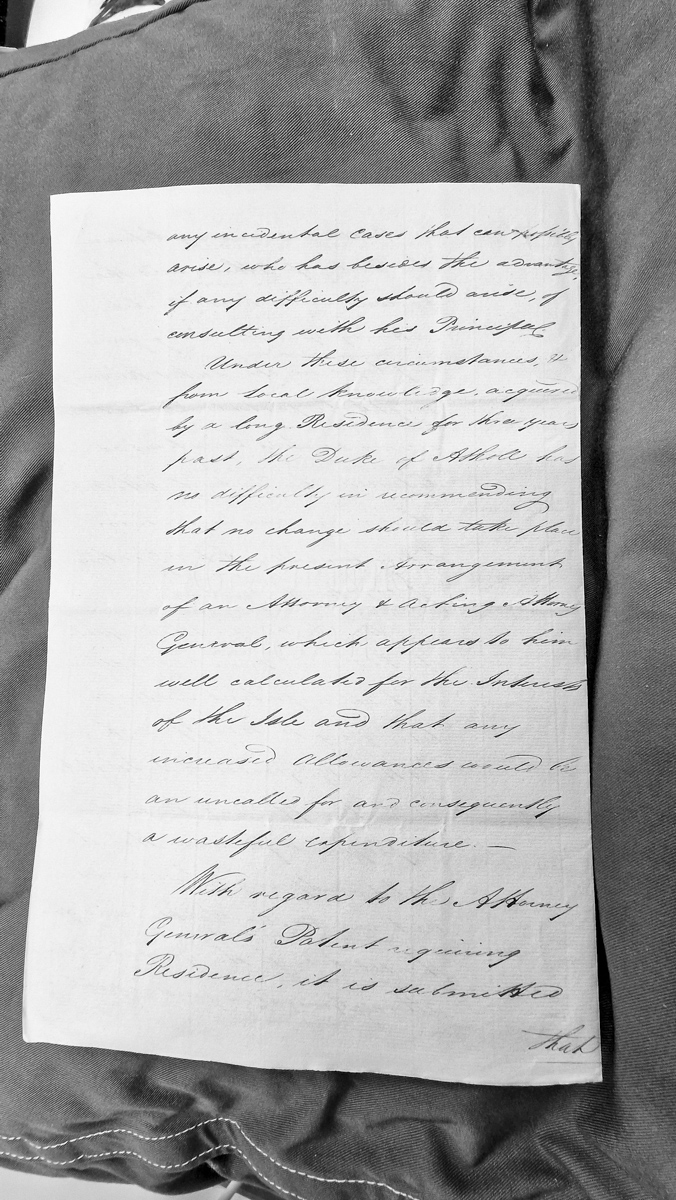 any incidental Cases that can possibly
arise, who has besides the advantage,
if any difficulty should arise, of
consulting with his Principal
Under these circumstances, &
from Local knowledge, acquired
by a long Residence for three years
past, the Duke of Atholl has
no difficulty in recommending
that no change should take place
in the present Arrangement
of an Attorney & Acting Attorney
General, which appears to him
well calculated for the Interests
of the Isle and that any
increased Allowances would be
an uncalled for and consequently
a wasteful expenditure. —
With regard to the Attorney
General's Patent requiring
Residence, it is submitted
that